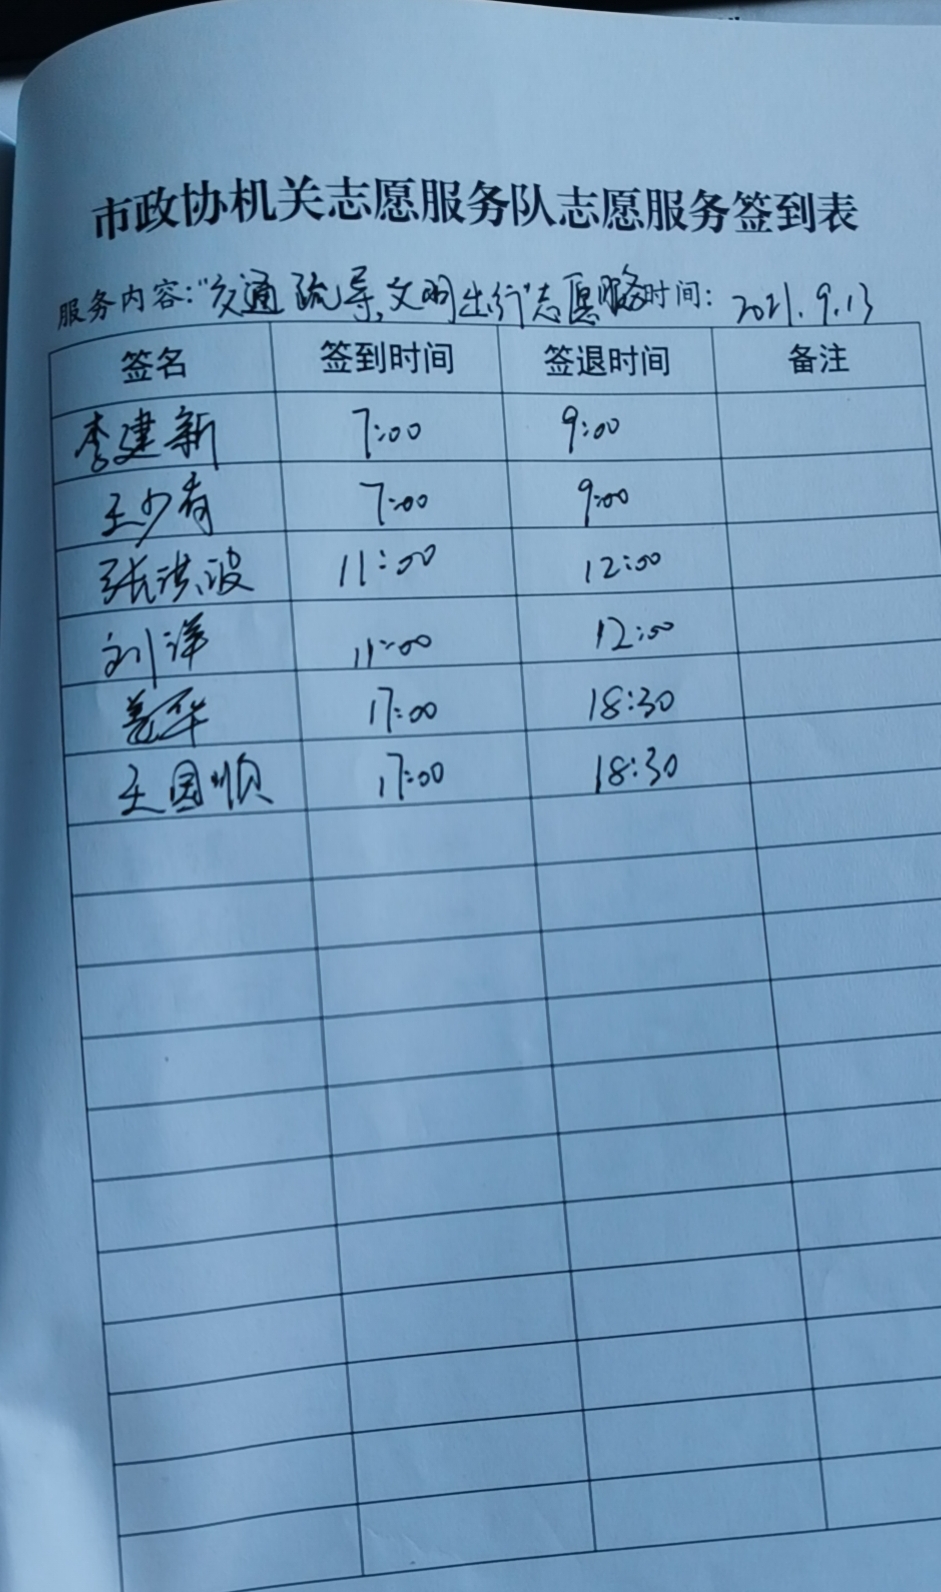 市政协机关志愿服务队志愿服务签到表
服务内容:“交通疏导,文明出行”志愿服务时间: 2021.9.13
签名 签到时间 签退时间 备注
李建新 7:00 9:00
王少有 7:00 9:00
张洪波 11:00 12:00
刘洋 11:00 12:00
姜华 17:00 18:30
王国顺 17:00 18:30